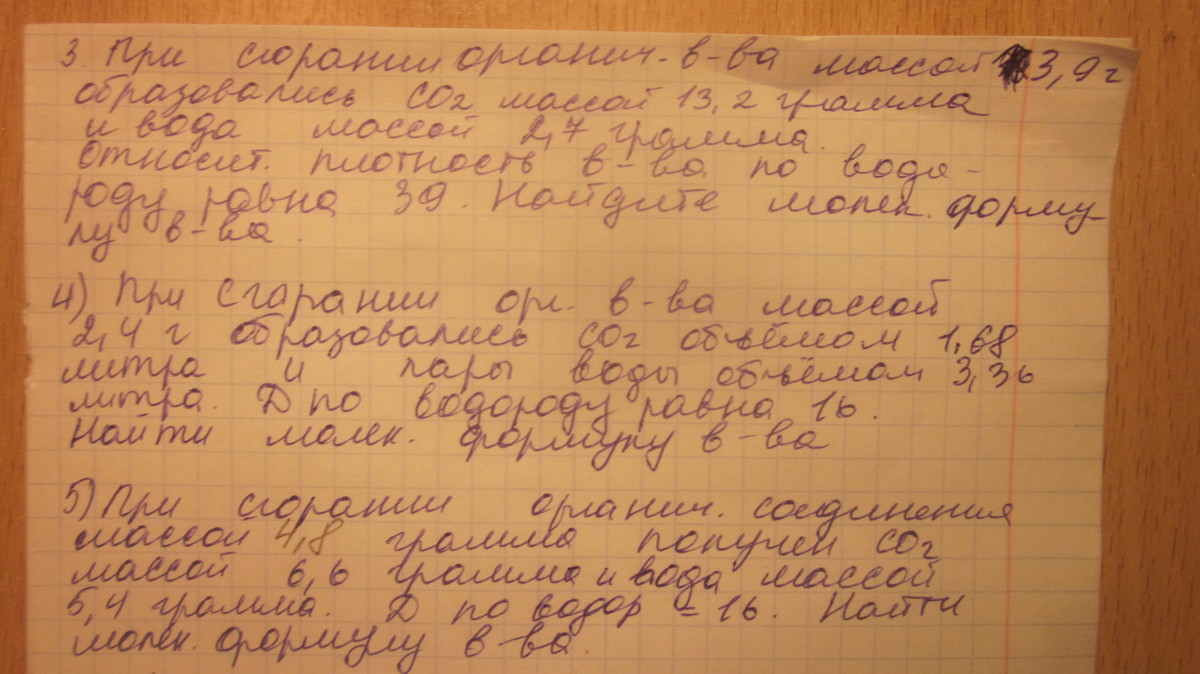 3. При сгорании органич. в-ва массой 3,9 г
образовались CO2 массой 13,2 грамма
и вода массой 2,7 грамма.
Относит. плотность в-ва по водо-
роду равна 39. Найдите молек. форму-
лу в-ва.
4) При сгарании орг. в-ва массой
2,4 г образовались CO2 объёмом 1,68
литра и пары воды объёмом 3,36
литра. D по водороду равна 16.
Найти молек. формулу в-ва
5) При сгорании органич. соединения
массой 4,8 грамма получен CO2
массой 6,6 грамма и вода массой
5,4 грамма. D по водор = 16. Найти
молек. формулу в-ва.